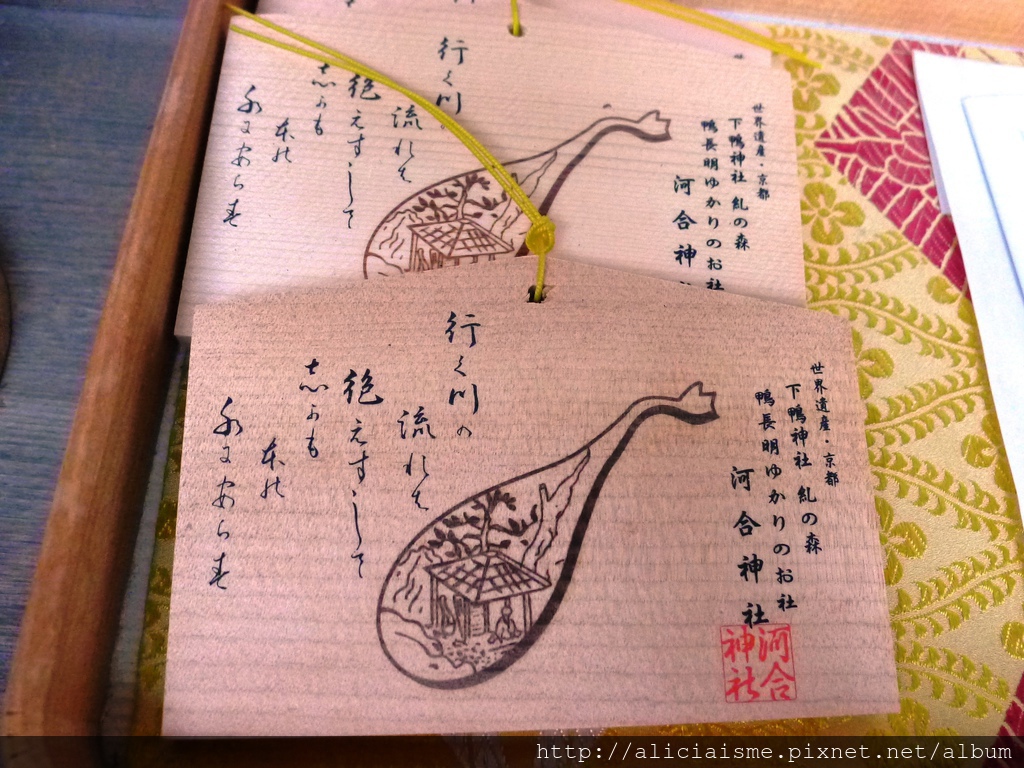 世界遺産・京都
下鴨神社 糺の森
鴨長明ゆかりのお社
河合神
行く川
流れて
絶えすして
志かも
本の
水にあらす
世界遺産・京都
下鴨神社 糺の森
鴨長明ゆかりのお社
河合神社
河合神社
行く川の
流れは
絶えすして
志かも
本の
水にあらす
http://aliciaisme.pixnet.net/album